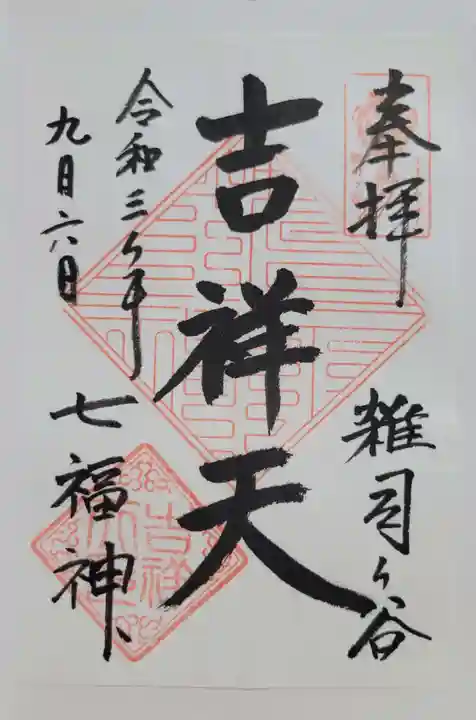 奉拝
雑司ヶ谷
吉祥天
令和三ヶ年
九月六日
七福神